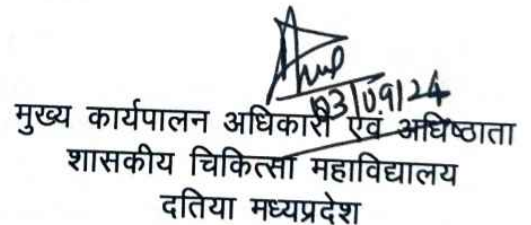 03/09/24
मुख्य कार्यपालन अधिकारी एवं अधिष्ठाता
शासकीय चिकित्सा महाविद्यालय
दतिया मध्यप्रदेश